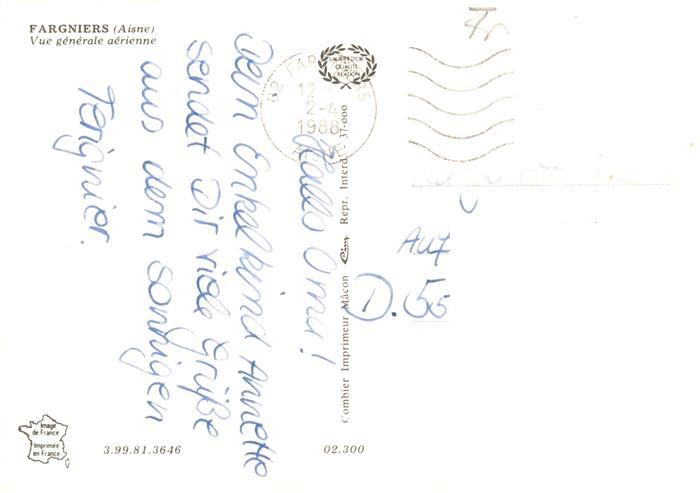 FARGNIERS (Aisne)
Vue générale aérienne
Hallo Oma!
Dein Enkelkind Annette
sendet Dir viele Grüße
aus dem sonnigen
Tergnier.
02
12
2-4
1988
LABEL D'OR
QUALITÉ
CRÉATION
Combier Imprimeur Mâcon Cim Repr. Interd. - 37-000
D. 55
Image
de France
Imprimée
en France
3.99.81.3646
02.300